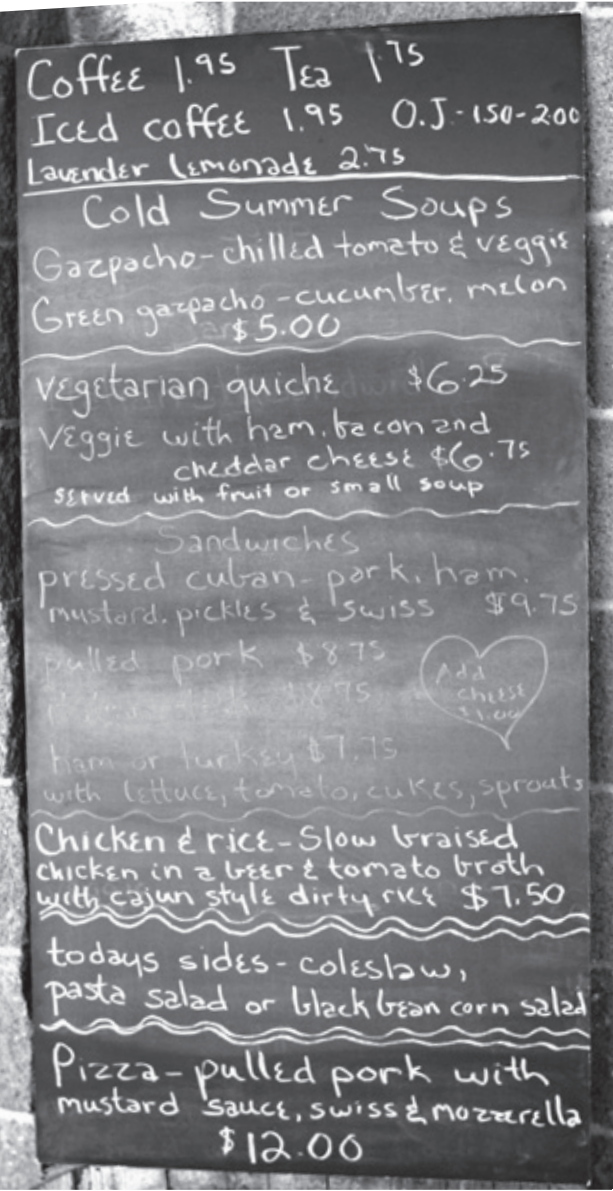 Coffee 1.95 Tea 1.75
Iced coffee 1.95 O.J.-150-200
Lavender Lemonade 2.75
Cold Summer Soups
Gazpacho-chilled tomato & veggie
Green gazpacho-cucumber, melon
$5.00
vegetarian quiche $6.25
Veggie with ham, bacon and
cheddar cheese $6.75
served with fruit or small soup
Sandwiches
pressed cuban-pork, ham,
mustard, pickles & swiss $9.75
pulled pork $8.75
$8.75
Add
cheese
$1.00
ham or turkey $7.75
with lettuce, tomato, cukes, sprouts
Chicken & rice-Slow braised
chicken in a beer & tomato broth
with cajun style dirty rice $7.50
todays sides-coleslaw,
pasta salad or black bean corn salad
Pizza-pulled pork with
mustard sauce, swiss & mozzerella
$12.00